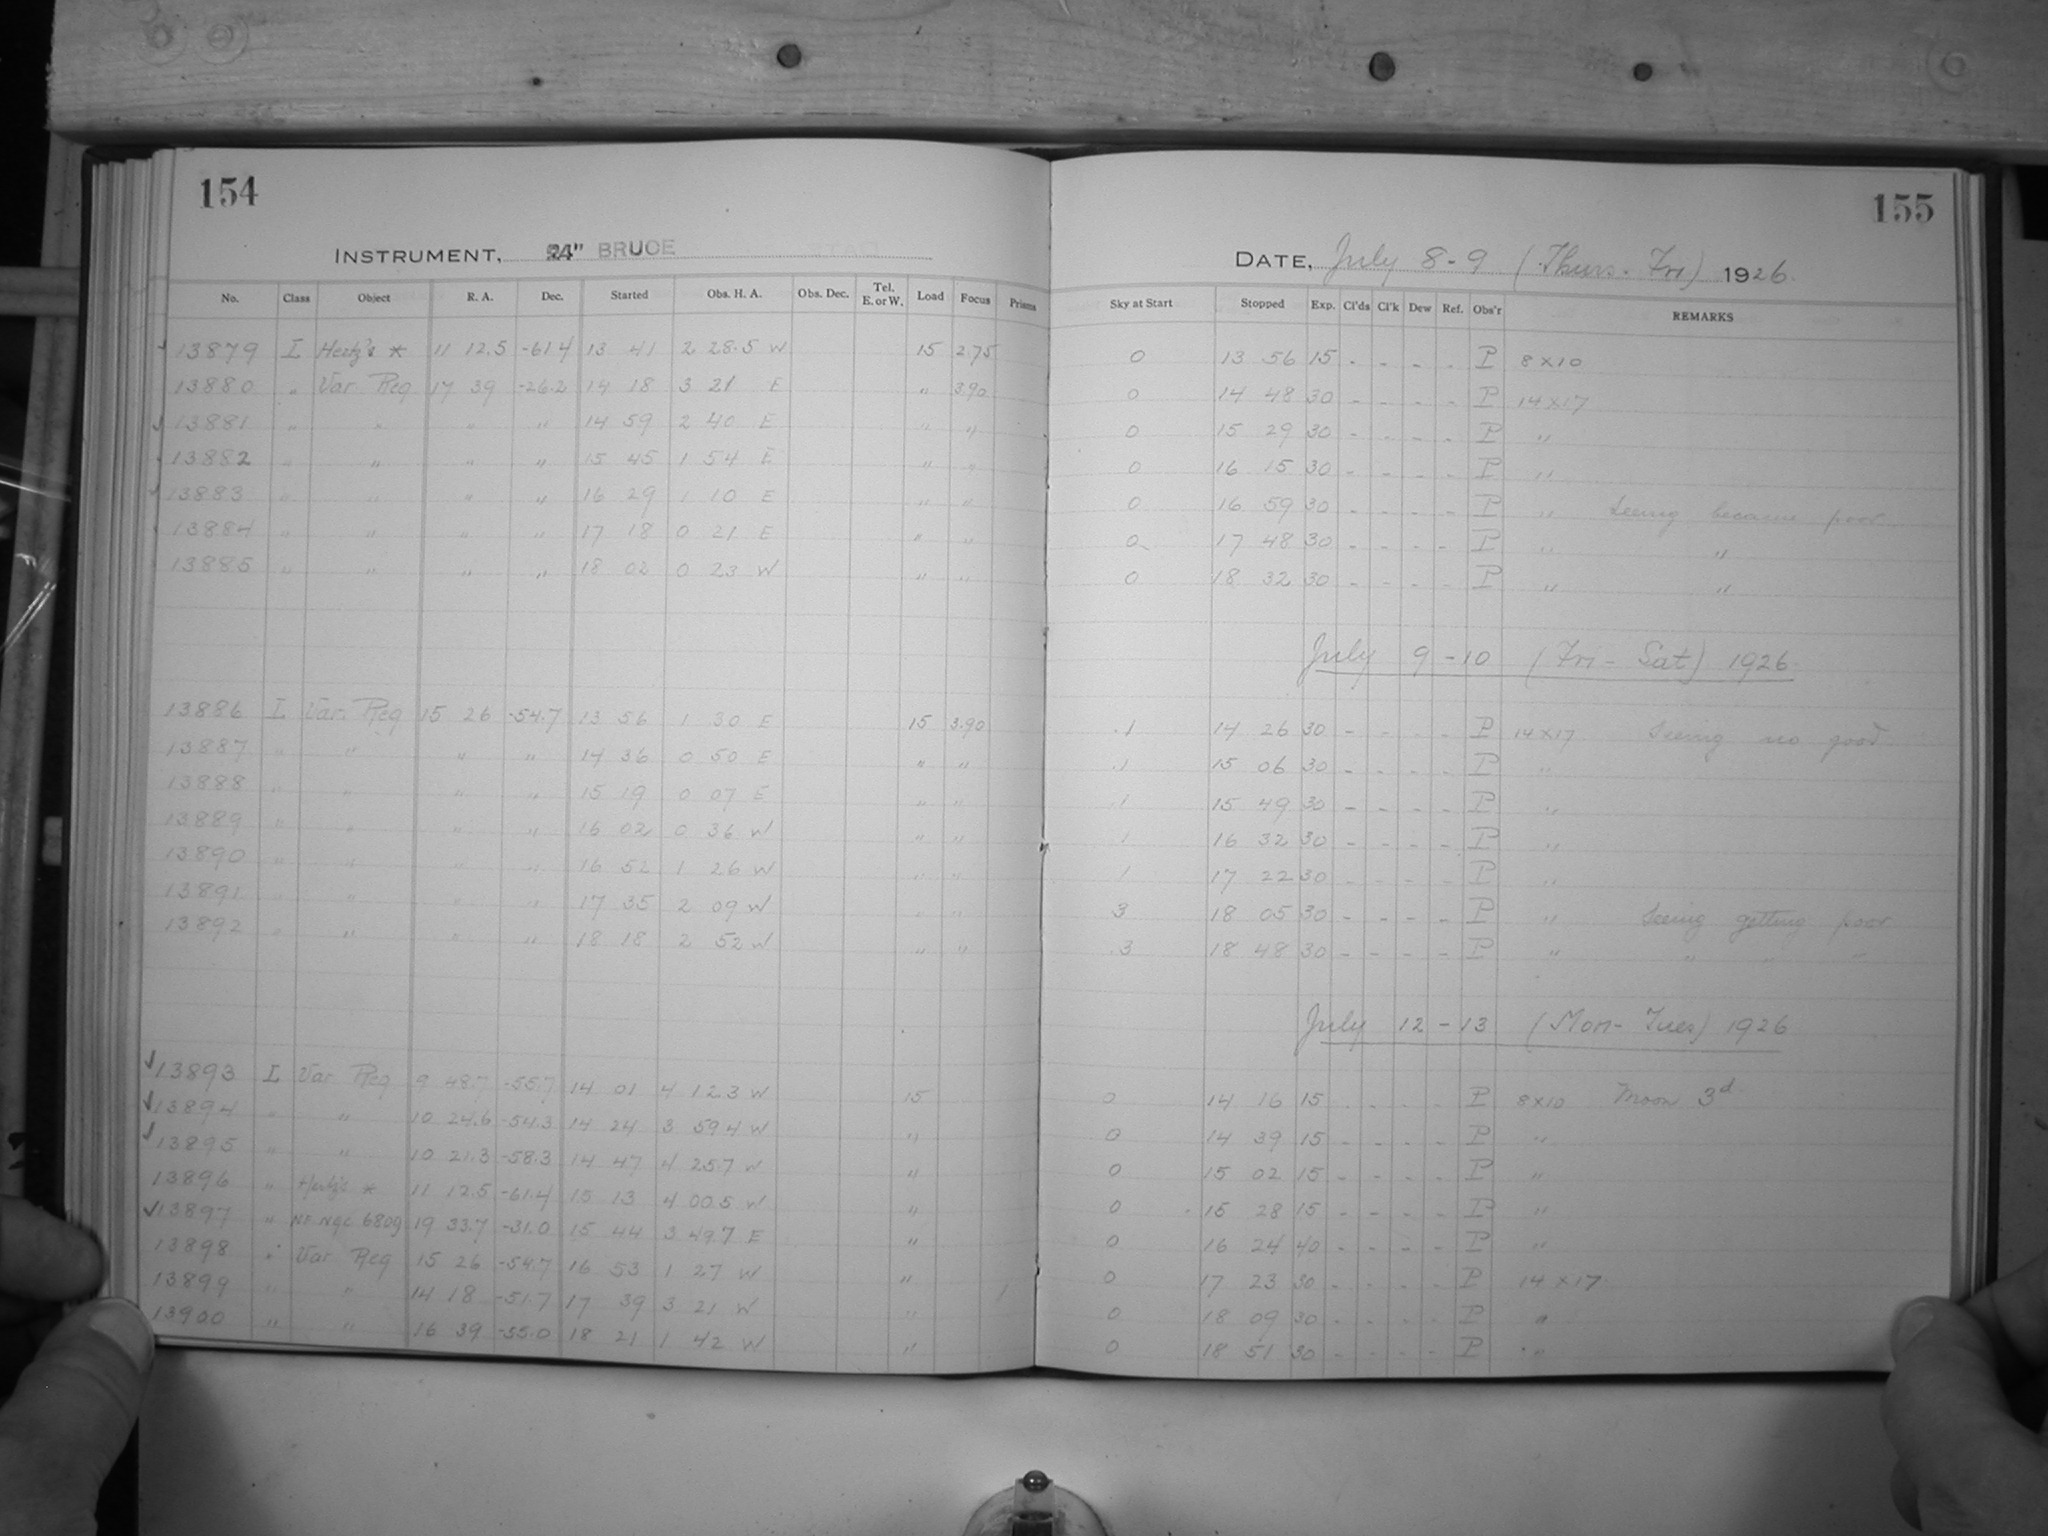 154
INSTRUMENT, 24" BRUCE
No. Class Object R. A. Dec. Started Obs. H. A. Obs. Dec. Tel. E. or W. Load Focus Prisms
13879 I Hertz's * 11 12.5 -61.4 13 41 2 28.5 W 15 2.75
13880 " Var Reg 17 39 -26.2 14 18 3 21 E " 3.90
13881 " " " " 14 59 2 40 E " "
13882 " " " " 15 45 1 54 E " "
13883 " " " " 16 29 1 10 E " "
13884 " " " " 17 18 0 21 E " "
13885 " " " " 18 02 0 23 W " "
13886 I Var. Reg 15 26 -54.7 13 56 1 30 E 15 3.90
13887 " " " " 14 36 0 50 E " "
13888 " " " " 15 19 0 07 E " "
13889 " " " " 16 02 0 36 W " "
13890 " " " " 16 52 1 26 W " "
13891 " " " " 17 35 2 09 W " "
13892 " " " " 18 18 2 52 W " "
✓13893 I Var Reg 9 48.7 -55.7 14 01 4 12.3 W 15
✓13894 " " 10 24.6 -54.3 14 24 3 59.4 W "
✓13895 " " 10 21.3 -58.3 14 47 4 25.7 W "
13896 " Hertz's * 11 12.5 -61.4 15 13 4 00.5 W "
✓13897 " Nf NGC 6809 19 33.7 -31.0 15 44 3 49.7 E "
13898 " Var Reg 15 26 -54.7 16 53 1 27 W "
13899 " " 14 18 -51.7 17 39 3 21 W "
13900 " " 16 39 -55.0 18 21 1 42 W "
155
DATE, July 8-9 (Thurs. Fri) 1926.
Sky at Start Stopped Exp. Cl'ds Cl'k Dew Ref. Obs'r REMARKS
0 13 56 15 - - - - P 8x10
0 14 48 30 - - - - P 14x17
0 15 29 30 - - - - P "
0 16 15 30 - - - - P "
0 16 59 30 - - - - P " Seeing became poor
0 17 48 30 - - - - P " "
0 18 32 30 - - - - P " "
July 9-10 (Fri-Sat) 1926.
.1 14 26 30 - - - - P 14x17 Seeing no good
.1 15 06 30 - - - - P "
.1 15 49 30 - - - - P "
1 16 32 30 - - - - P "
1 17 22 30 - - - - P "
3 18 05 30 - - - - P " Seeing getting poor
.3 18 48 30 - - - - P " " " "
July 12-13 (Mon-Tues) 1926
0 14 16 15 - - - - P 8x10 Moon 3d
0 14 39 15 - - - - P "
0 15 02 15 - - - - P "
0 15 28 15 - - - - P "
0 16 24 40 - - - - P "
0 17 23 30 - - - - P 14x17
0 18 09 30 - - - - P "
0 18 51 30 - - - - P "